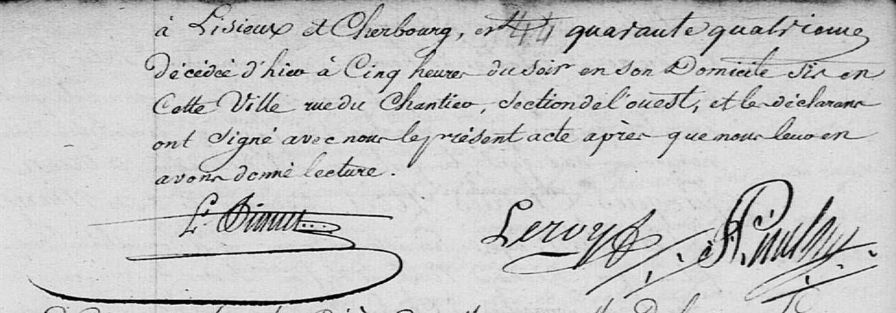 à Lisieux et Cherbourg, et 44 quarante quatrieme
décédée d'hier à Cinq heures du soir en son Domicile sis en
Cette Ville rue du Chantier, section de l'ouest, et les déclarans
ont signé avec nous le présent acte après que nous leur en
avons donné lecture.
Leroy